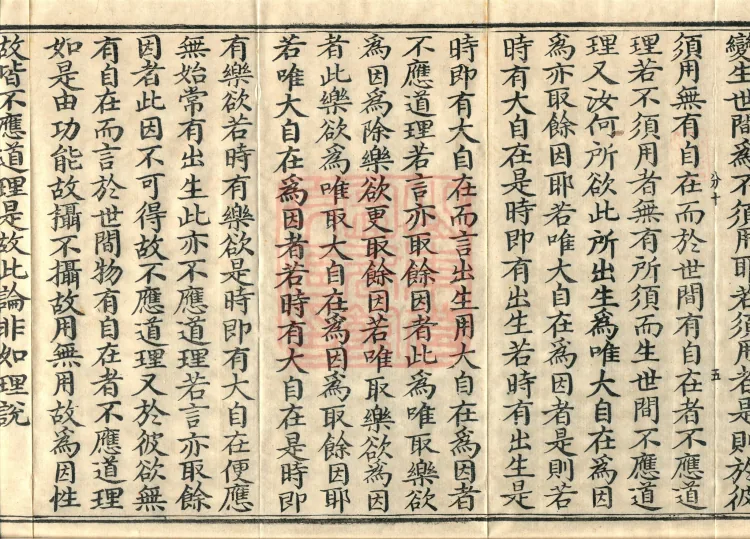 變生世間爲不須用耶若須用者是則於彼
須用無有自在而於世間有自在者不應道
理若不須用者無有所須而生世間不應道
理又汝何所欲此所出生爲唯大自在爲因
爲亦取餘因耶若唯大自在爲因者是則若
時有大自在是時即有出生若時有出生是
時即有大自在而言出生用大自在爲因者
不應道理若言亦取餘因者此爲唯取樂欲
爲因爲除樂欲更取餘因若唯取樂欲爲因
者此樂欲爲唯取大自在爲因爲取餘因耶
若唯大自在爲因者若時有大自在是時即
有樂欲若時有樂欲是時即有大自在便應
無始常有出生此亦不應道理若言亦取餘
因者此因不可得故不應道理又於彼欲無
有自在而言於世間物有自在者不應道理
如是由功能故攝不攝故用無用故爲因性
故皆不應道理是故此論非如理說
分十
五